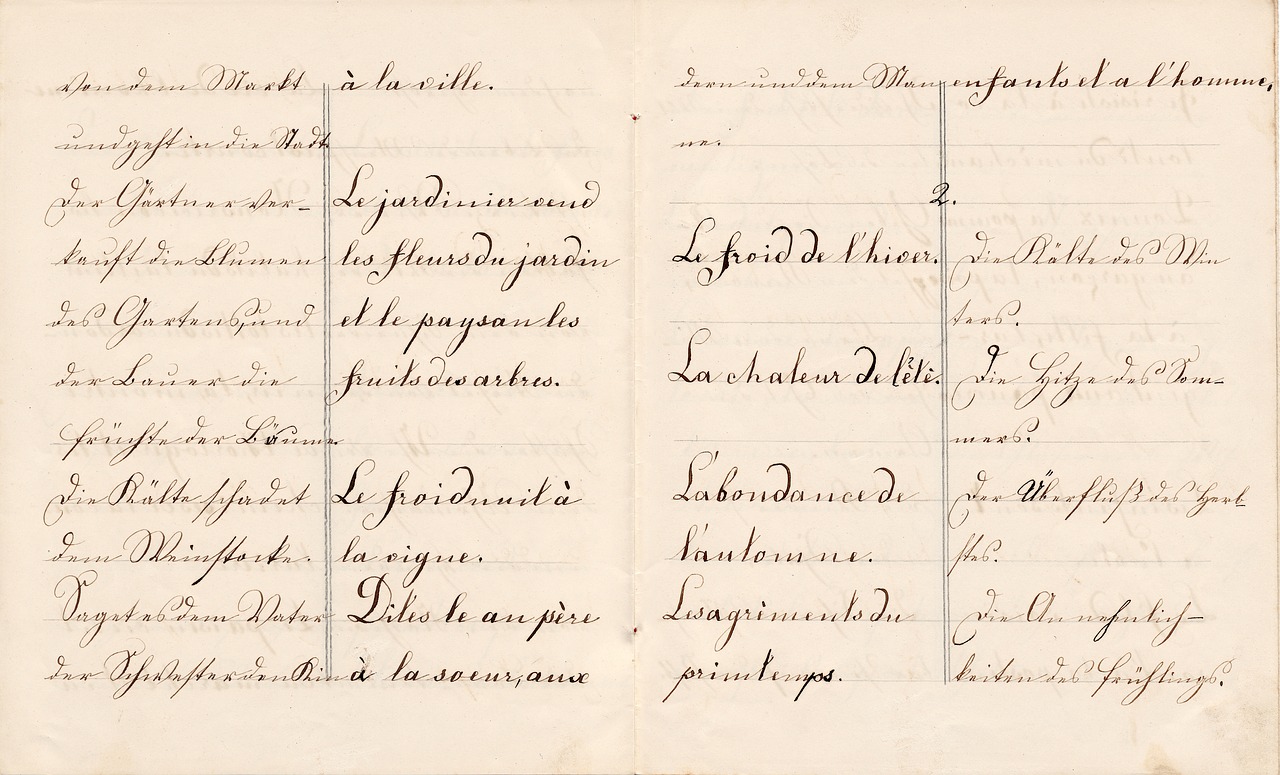 von dem Markt
und geht in die Stadt
Der Gärtner ver-
kauft die Blumen
des Gartens, und
der Bauer die
Früchte der Bäume.
Die Kälte schadet
dem Weinstocke.
Saget es dem Vater
der Schwester den Kin
à la ville.
Le jardinier vend
les fleurs du jardin
et le paysan les
fruits des arbres.
Le froid nuit à
la vigne.
Dites le au père
à la soeur, aux
dern und dem Man
ne.
enfants et a l'homme.
2.
Le froid de l'hiver.
La chaleur de l'été.
L'abondance de
l'automne.
Les agrèments du
printemps.
Die Kälte des Win
ters.
Die Hitze des Som-
mers.
Der Überfluß des Herb-
stes.
Die Annehnlich-
keiten des Frühlings.